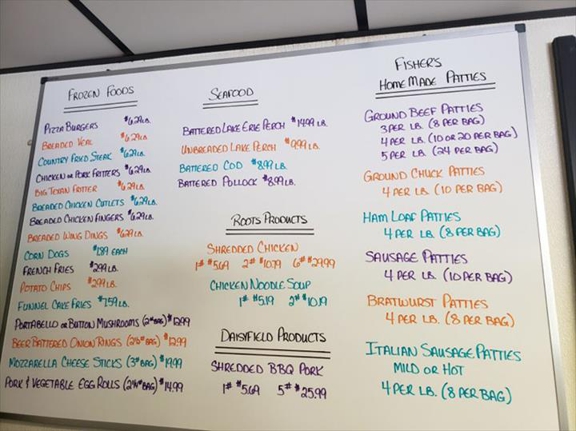 FROZEN FOODS
PIZZA BURGERS $6.29 LB.
BREADED VEAL $6.29 LB.
COUNTRY FRIED STEAK $6.29 LB.
CHICKEN OR PORK FRITTERS $6.29 LB.
BIG TEXAN FRITTER $6.29 LB.
BREADED CHICKEN CUTLETS $6.29 LB.
BREADED CHICKEN FINGERS $6.29 LB.
BREADED WING DINGS $6.29 LB.
CORN DOGS $1.89 EACH
FRENCH FRIES $2.99 LB.
POTATO CHIPS $2.99 LB.
FUNNEL CAKE FRIES $7.59 LB.
PORTABELLO OR BUTTON MUSHROOMS (2# BAG) $12.99
BEER BATTERED ONION RINGS BAG) $12.99
MOZZARELLA CHEESE STICKS (3# BAG) $19.99
PORK & VEGETABLE EGG ROLLS BAG) $14.99
SEAFOOD
BATTERED LAKE ERIE PERCH $14.99 LB.
UNBREADED LAKE PERCH $9.99 LB.
BATTERED COD $8.99 LB.
BATTERED POLLOCK $8.99 LB.
ROOTS PRODUCTS
SHREDDED CHICKEN
1# $5.69 2# $10.79 6# $29.99
CHICKEN NOODLE SOUP
1# $5.19 2# $10.19
DAISYFIELD PRODUCTS
SHREDDED BBQ PORK
1# $5.69 5# $25.99
FISHER'S
HOMEMADE PATTIES
GROUND BEEF PATTIES
3 PER LB. (8 PER BAG)
4 PER LB. (10 OR 20 PER BAG)
5 PER LB. (24 PER BAG)
GROUND CHUCK PATTIES
4 PER LB. (10 PER BAG)
HAM LOAF PATTIES
4 PER LB. (8 PER BAG)
SAUSAGE PATTIES
4 PER LB. (10 PER BAG)
BRATWURST PATTIES
4 PER LB. (8 PER BAG)
ITALIAN SAUSAGE PATTIES
MILD OR HOT
4 PER LB. (8 PER BAG)